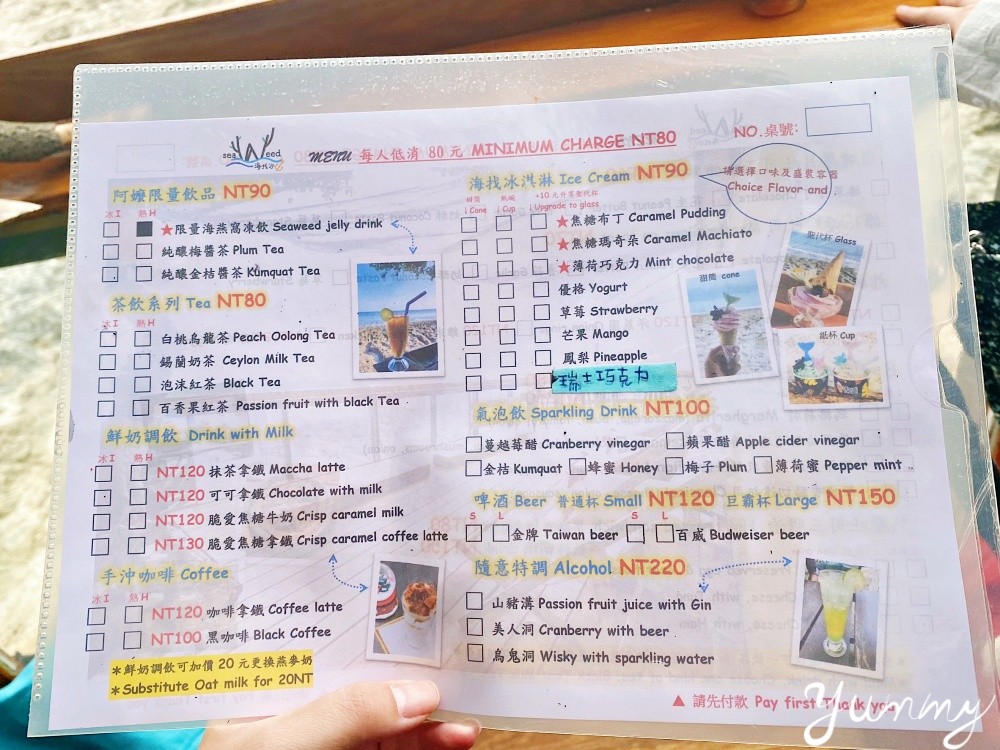 sea Weed
海找沙
MENU 每人低消 80 元 MINIMUM CHARGE NT80
NO.桌號:
阿嬤限量飲品 NT90
冰I 熱H
★限量海燕窩凍飲 Seaweed jelly drink
純釀梅醬茶 Plum Tea
純釀金桔醬茶 Kumquat Tea
茶飲系列 Tea NT80
冰I 熱H
白桃烏龍茶 Peach Oolong Tea
錫蘭奶茶 Ceylon Milk Tea
泡沫紅茶 Black Tea
百香果紅茶 Passion fruit with black Tea
鮮奶調飲 Drink with Milk
冰I 熱H
NT120 抹茶拿鐵 Maccha latte
NT120 可可拿鐵 Chocolate with milk
NT120 脆愛焦糖牛奶 Crisp caramel milk
NT130 脆愛焦糖拿鐵 Crisp caramel coffee latte
手沖咖啡 Coffee
冰I 熱H
NT120 咖啡拿鐵 Coffee latte
NT100 黑咖啡 Black Coffee
*鮮奶調飲可加價 20 元更換燕麥奶
*Substitute Oat milk for 20NT
海找冰淇淋 Ice Cream NT90
請選擇口味及盛裝容器
Choice Flavor and
甜筒 紙碗 +10 元升等聖代杯
↓Cone ↓Cup ↓Upgrade to glass
★焦糖布丁 Caramel Pudding
★焦糖瑪奇朵 Caramel Machiato
★薄荷巧克力 Mint chocolate
優格 Yogurt
草莓 Strawberry
芒果 Mango
鳳梨 Pineapple
瑞士巧克力
聖代杯 Glass
甜筒 cone
紙杯 Cup
氣泡飲 Sparkling Drink NT100
蔓越莓醋 Cranberry vinegar 蘋果醋 Apple cider vinegar
金桔 Kumquat 蜂蜜 Honey 梅子 Plum 薄荷蜜 Pepper mint
啤酒 Beer 普通杯 Small NT120 巨霸杯 Large NT150
S L S L
金牌 Taiwan beer 百威 Budweiser beer
隨意特調 Alcohol NT220
山豬溝 Passion fruit juice with Gin
美人洞 Cranberry with beer
烏鬼洞 Wisky with sparkling water
▲ 請先付款 Pay first Thank you
yummy